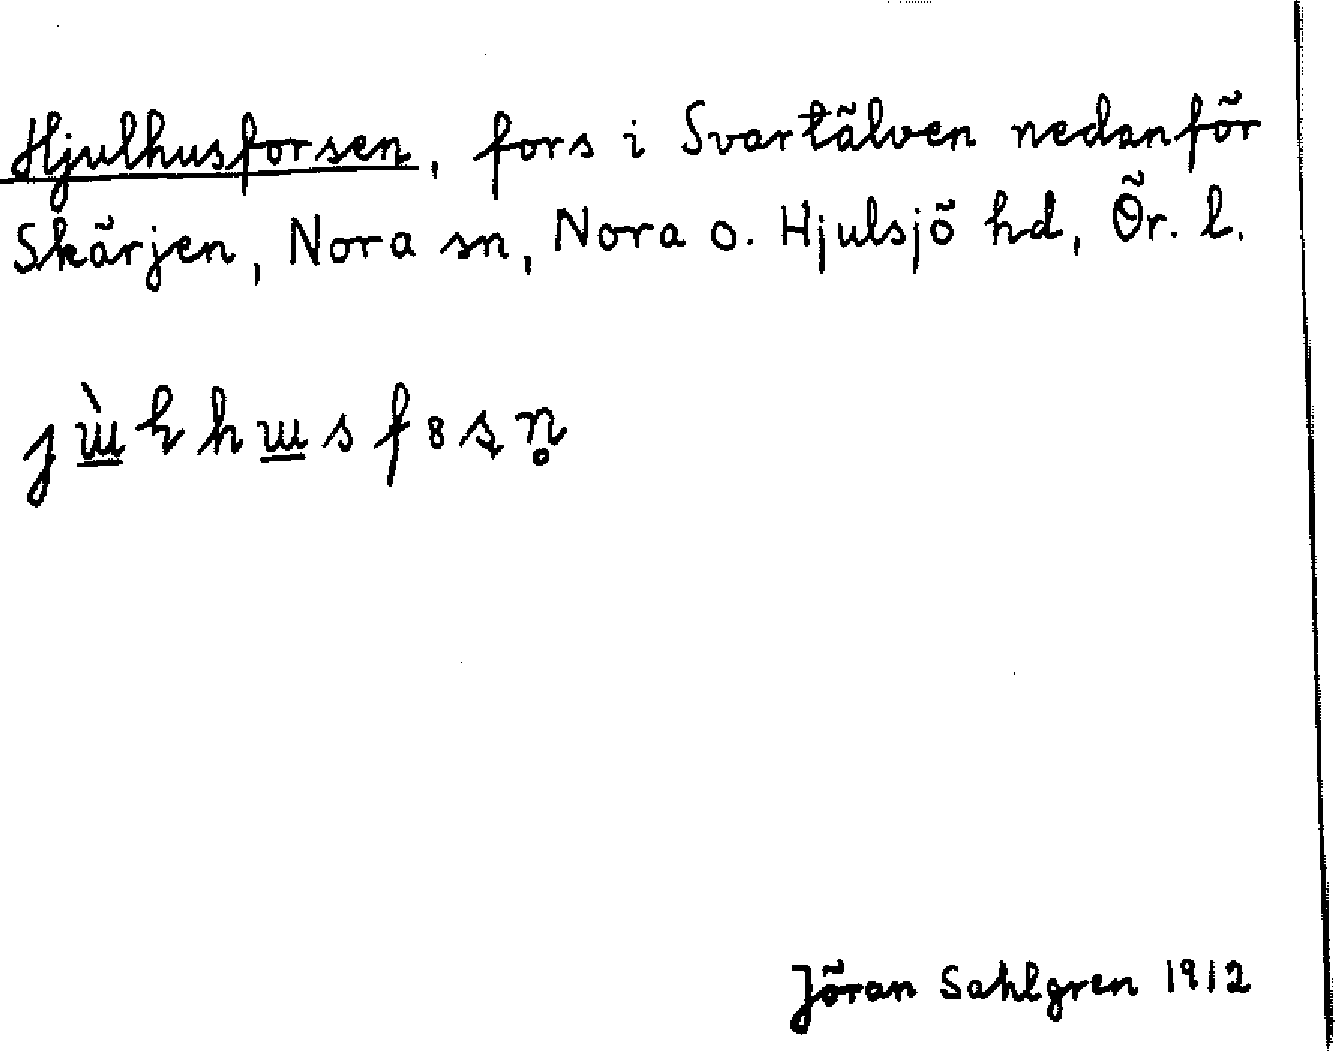 Hjulhusforsen, fors i Svartälven nedanför
Skärjen, Nora sn, Nora o. Hjulsjö hd, Ör. l.
Jöran Sahlgren 1912